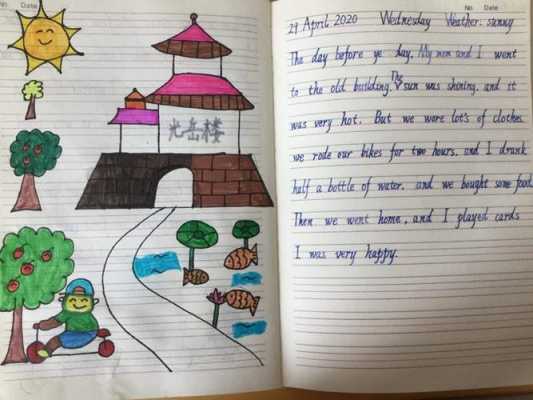 No. Date
光岳楼
No. Date
29 April. 2020 Wednesday Weather: sunny
The day before ye day, My mom and I went
to the old building. The sun was shining. and it
was very hot. But we wore lot's of clothes
we rode our bikes for two hours. and I drank
half a bottle of water. and we bought some food.
Then we went home, and I played cards
I was very happy.